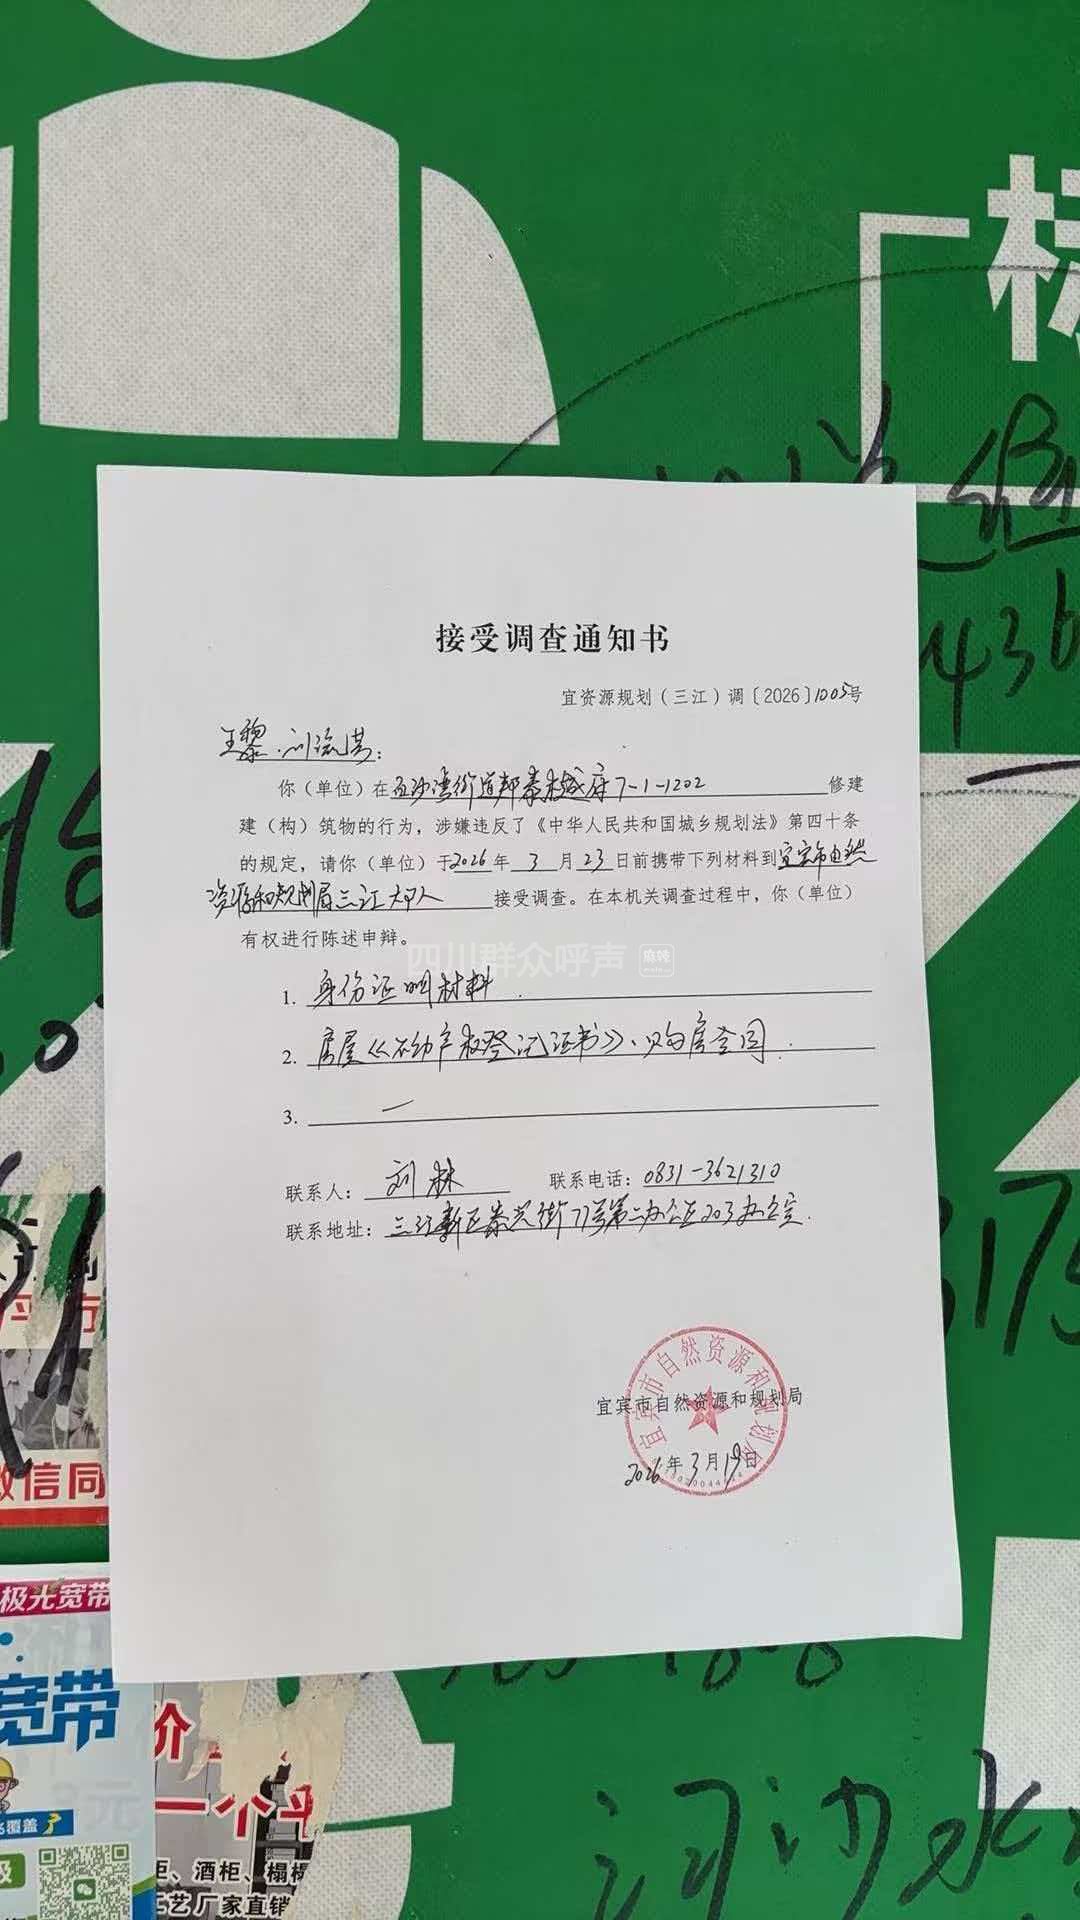 接受调查通知书
宜资源规划(三江)调〔2026〕1005号
王黎、刘流洪:
你(单位)在白沙湾街道邦泰樾府7-1-1202修建
建(构)筑物的行为,涉嫌违反了《中华人民共和国城乡规划法》第四十条
的规定,请你(单位)于2026年3月23日前携带下列材料到宜宾市自然
资源和规划局三江 接受调查。在本机关调查过程中,你(单位)
有权进行陈述申辩。
四川群众呼声 麻辣
1. 身份证明材料.
2. 房屋《不动产权登记证书》、购房合同.
3. 一
联系人: 刘林 联系电话: 0831-3621310
联系地址: 三江新区泰兴街77号第二办公区203办公室.
宜宾市自然资源和规划局
宜宾市自然资源和规划局
2026年3月19日
436
175
微信同
极光宽带
宽带
覆盖
价
一个平
柜、酒柜、榻榻
工艺厂家直销
河沙水